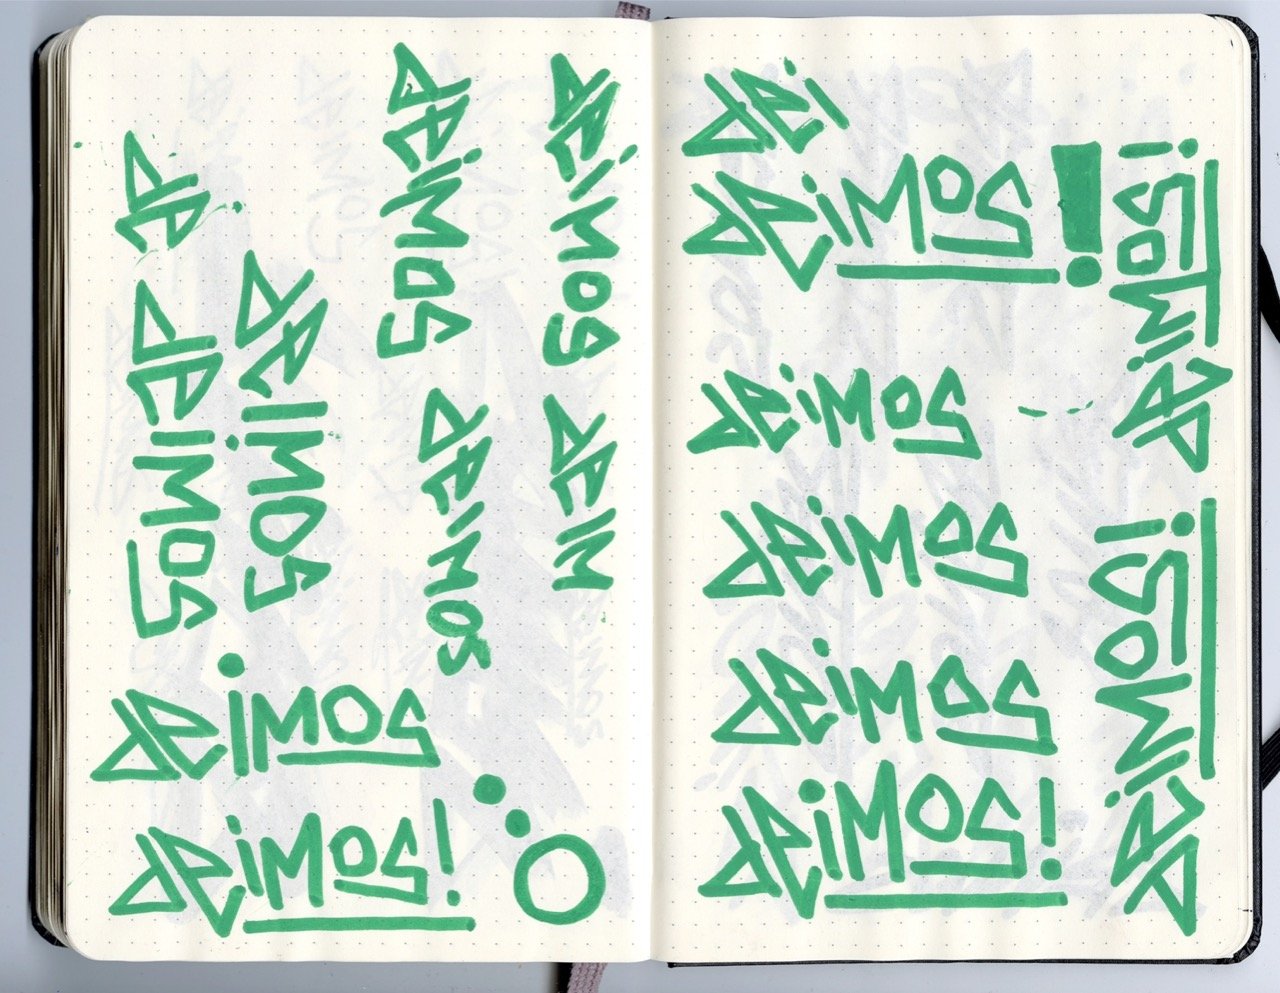 de
deimos
deimos
deimos
deimos
deimos
deim
deimos
deimos!
dei
deimos!
deimos
deimos
deimos
deimos!
deimos!
deimos!